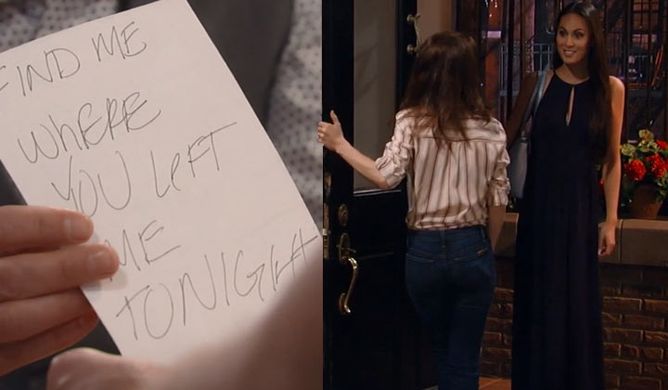 FIND ME
WHERE
YOU LEFT
ME
TONIGHT